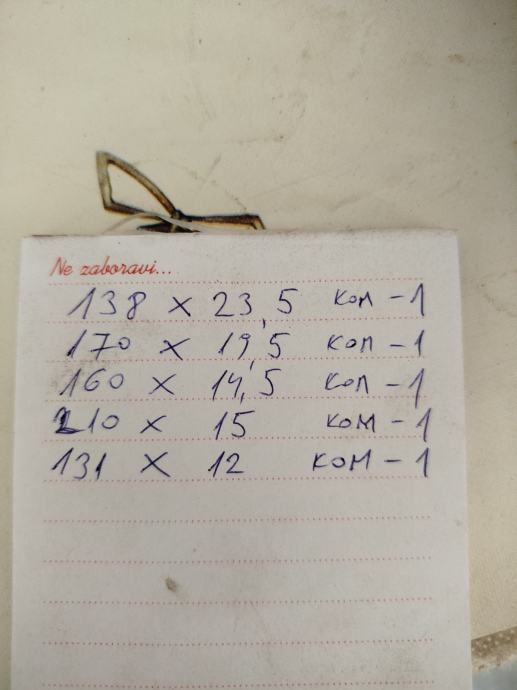 Ne zaboravi...
138 x 23,5 ком - 1
170 x 19,5 ком - 1
160 x 14,5 ком - 1
210 x 15 ком - 1
131 x 12 ком - 1